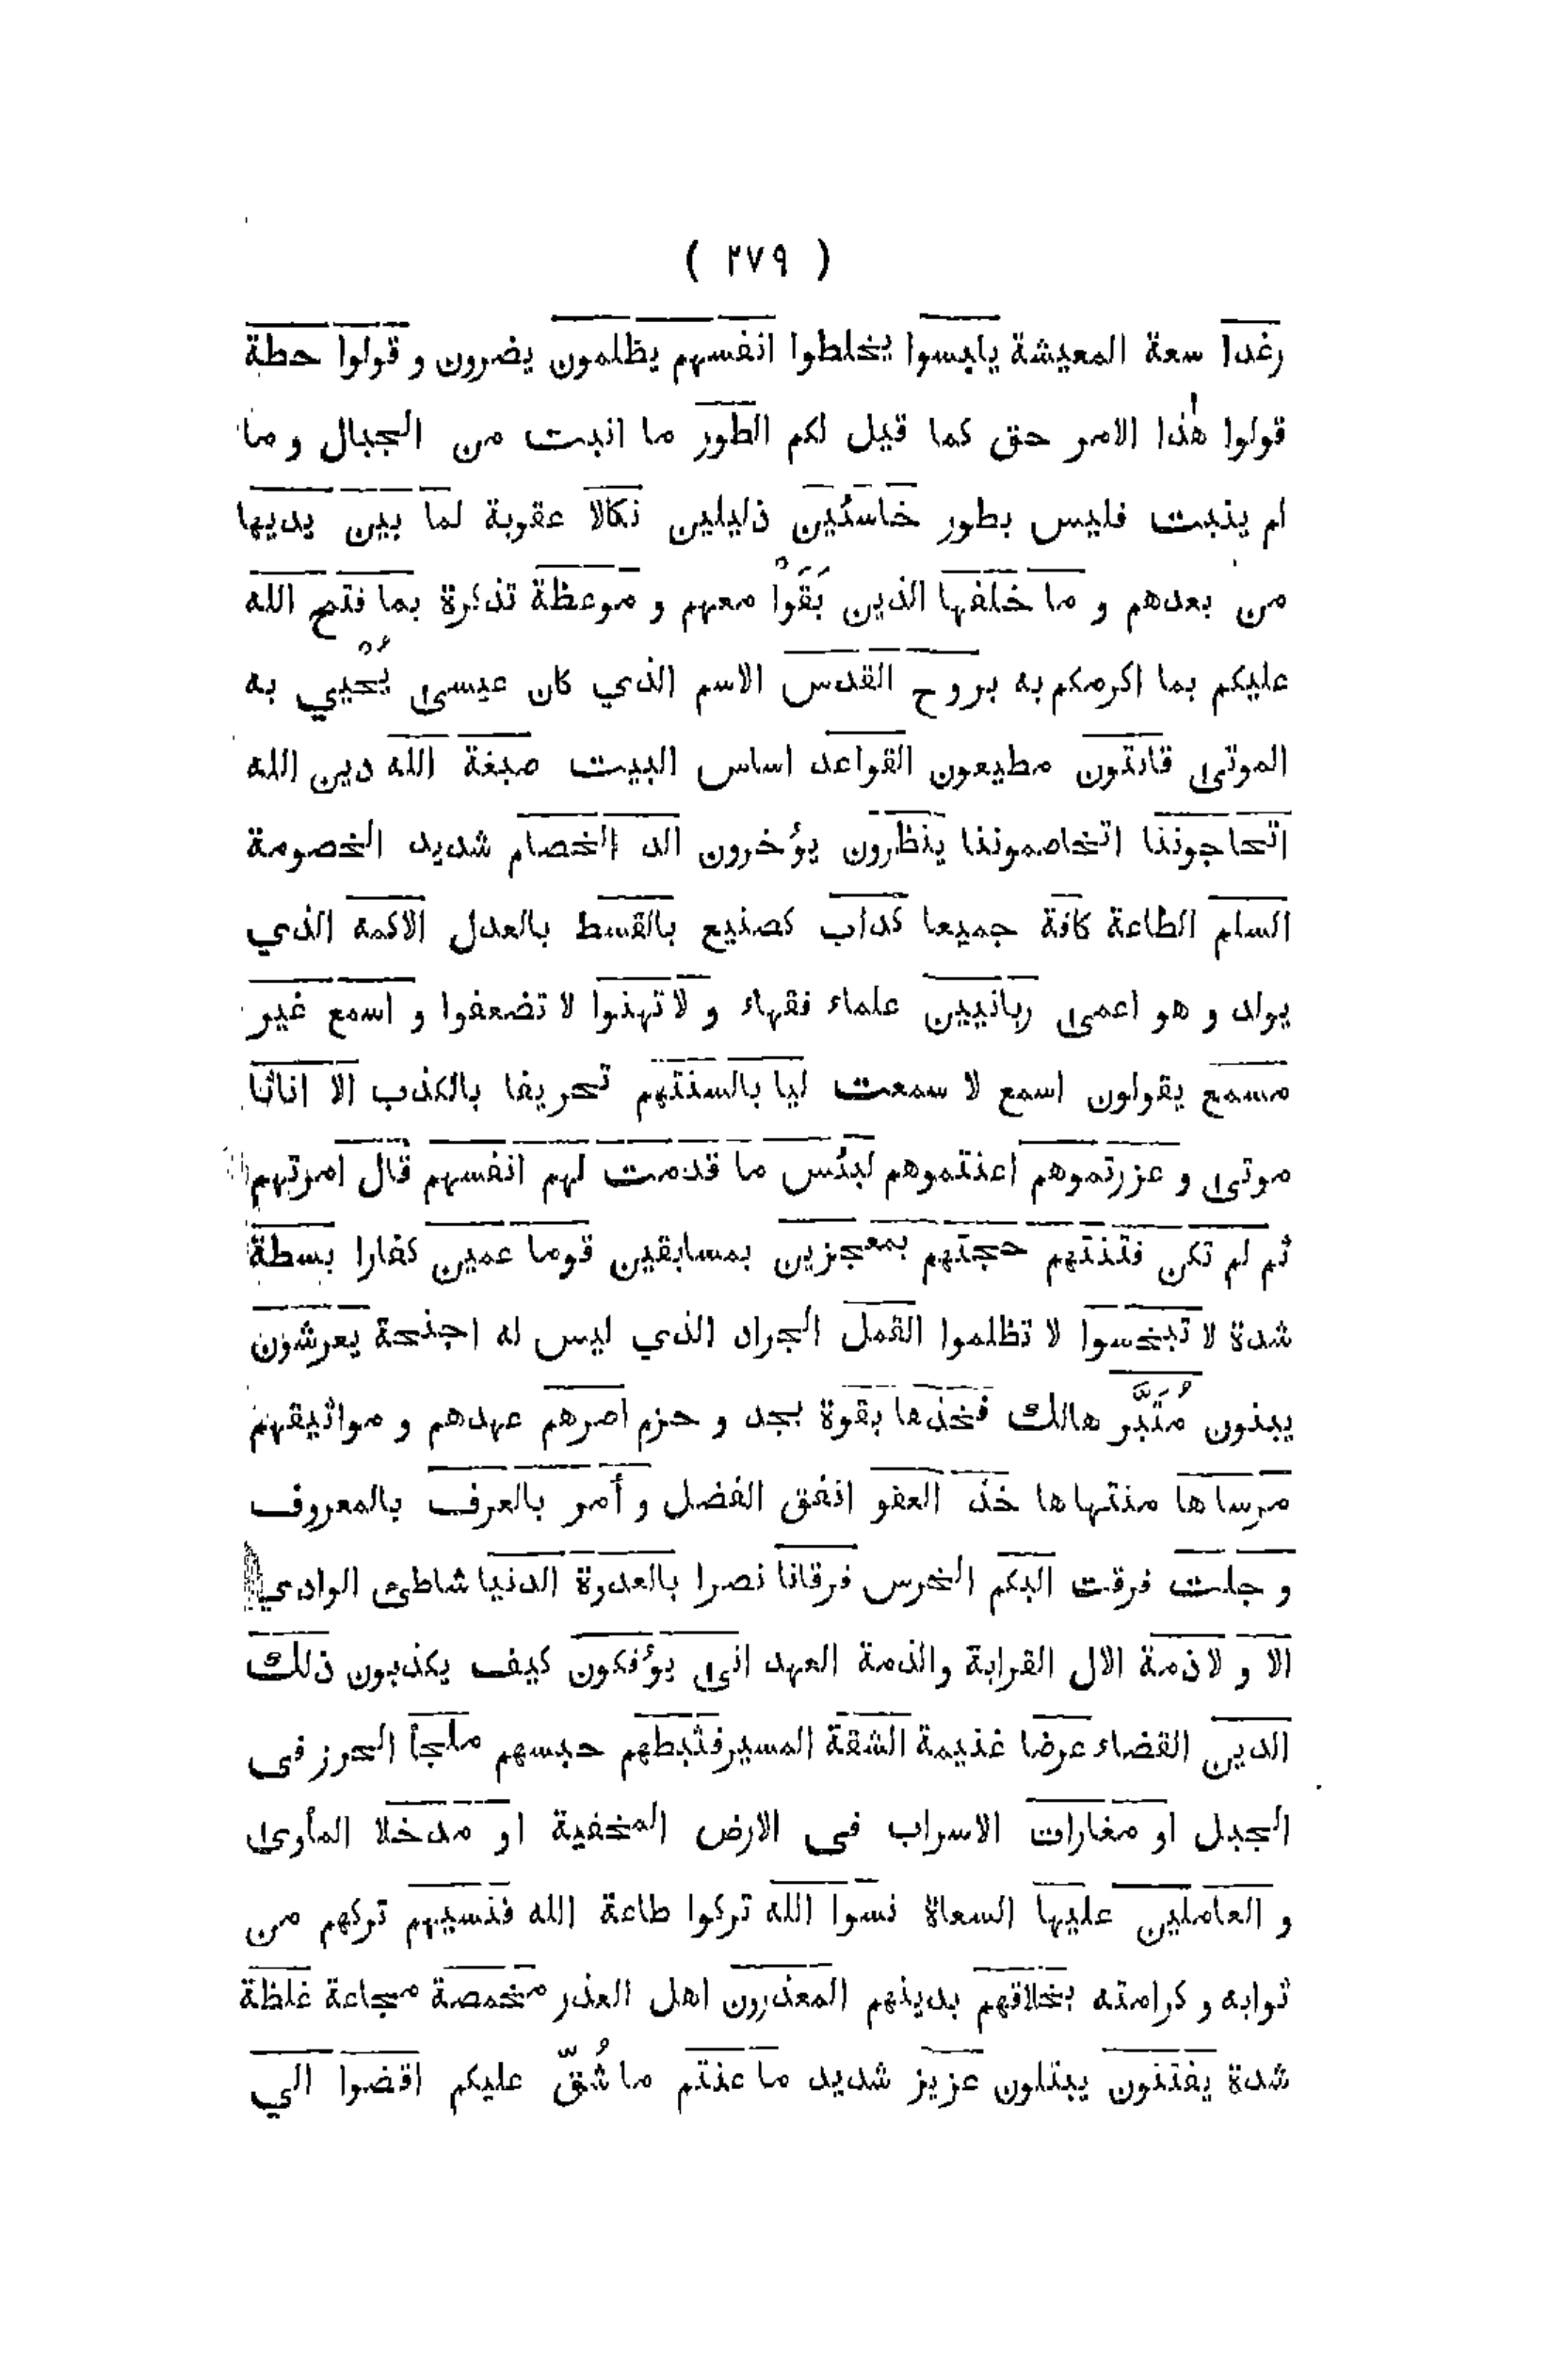 ( ٢٧٩ )
رغدا سعة المعيشة يلبسوا يخلطوا انفسهم يظلمون يضرون و قولوا حطة
قولوا هٰذا الامر حق كما قيل لكم الطور ما انبت من الجبال و ما
لم ينبت فليس بطور خاسئين ذليلين نكالا عقوبة لما بين يديها
من بعدهم و ما خلفها الذين بَقَوْا معهم و موعظة تذكرة بما فتح الله
عليكم بما اكرمكم به بروح القدس الاسم الذي كان عيسى يُحْيي به
الموتى قانتون مطيعون القواعد اساس البيت صبغة الله دين الله
اتحاجوننا اتخاصموننا ينظرون يؤخرون الد الخصام شديد الخصومة
السلم الطاعة كافة جميعا كداب كصنيع بالقسط بالعدل الاكمه الذي
يولد و هو اعمى ربانيين علماء فقهاء و لا تهنوا لا تضعفوا و اسمع غير
مسمع يقولون اسمع لا سمعت ليا بالسنتهم تحريفا بالكذب الا اناثا
موتى و عزرتموهم اعنتموهم لبئس ما قدمت لهم انفسهم قال امرتهم
ثم لم تكن فتنتهم حجتهم بمعجزين بمسابقين قوما عمين كفارا بسطة
شدة لا تبخسوا لا تظلموا القمل الجراد الذي ليس له اجنحة يعرشون
يبنون مُتَبَّر هالك فخذها بقوة بجد و حزم اصرهم عهدهم و مواثيقهم
مرساها منتهاها خذ العفو انفق الفضل و أمر بالعرف بالمعروف
و جلت فرقت البكم الخرس فرقانا نصرا بالعدوة الدنيا شاطئ الوادي
الا و لا ذمة الال القرابة والذمة العهد انى يؤفكون كيف يكذبون ذلك
الدين القضاء عرضا غنيمة الشقة المسير فثبطهم حبسهم ملجأ الحرز في
الجبل او مغارات الاسراب في الارض المخفية او مدخلا المأوى
و العاملين عليها السعاة نسوا الله تركوا طاعة الله فنسيهم تركهم من
ثوابه و كرامته بخلاقهم بدينهم المعذرون اهل العذر مخمصة مجاعة غلظة
شدة يفتنون يبتلون عزيز شديد ما عنتم ما شُقّ عليكم اقضوا الي